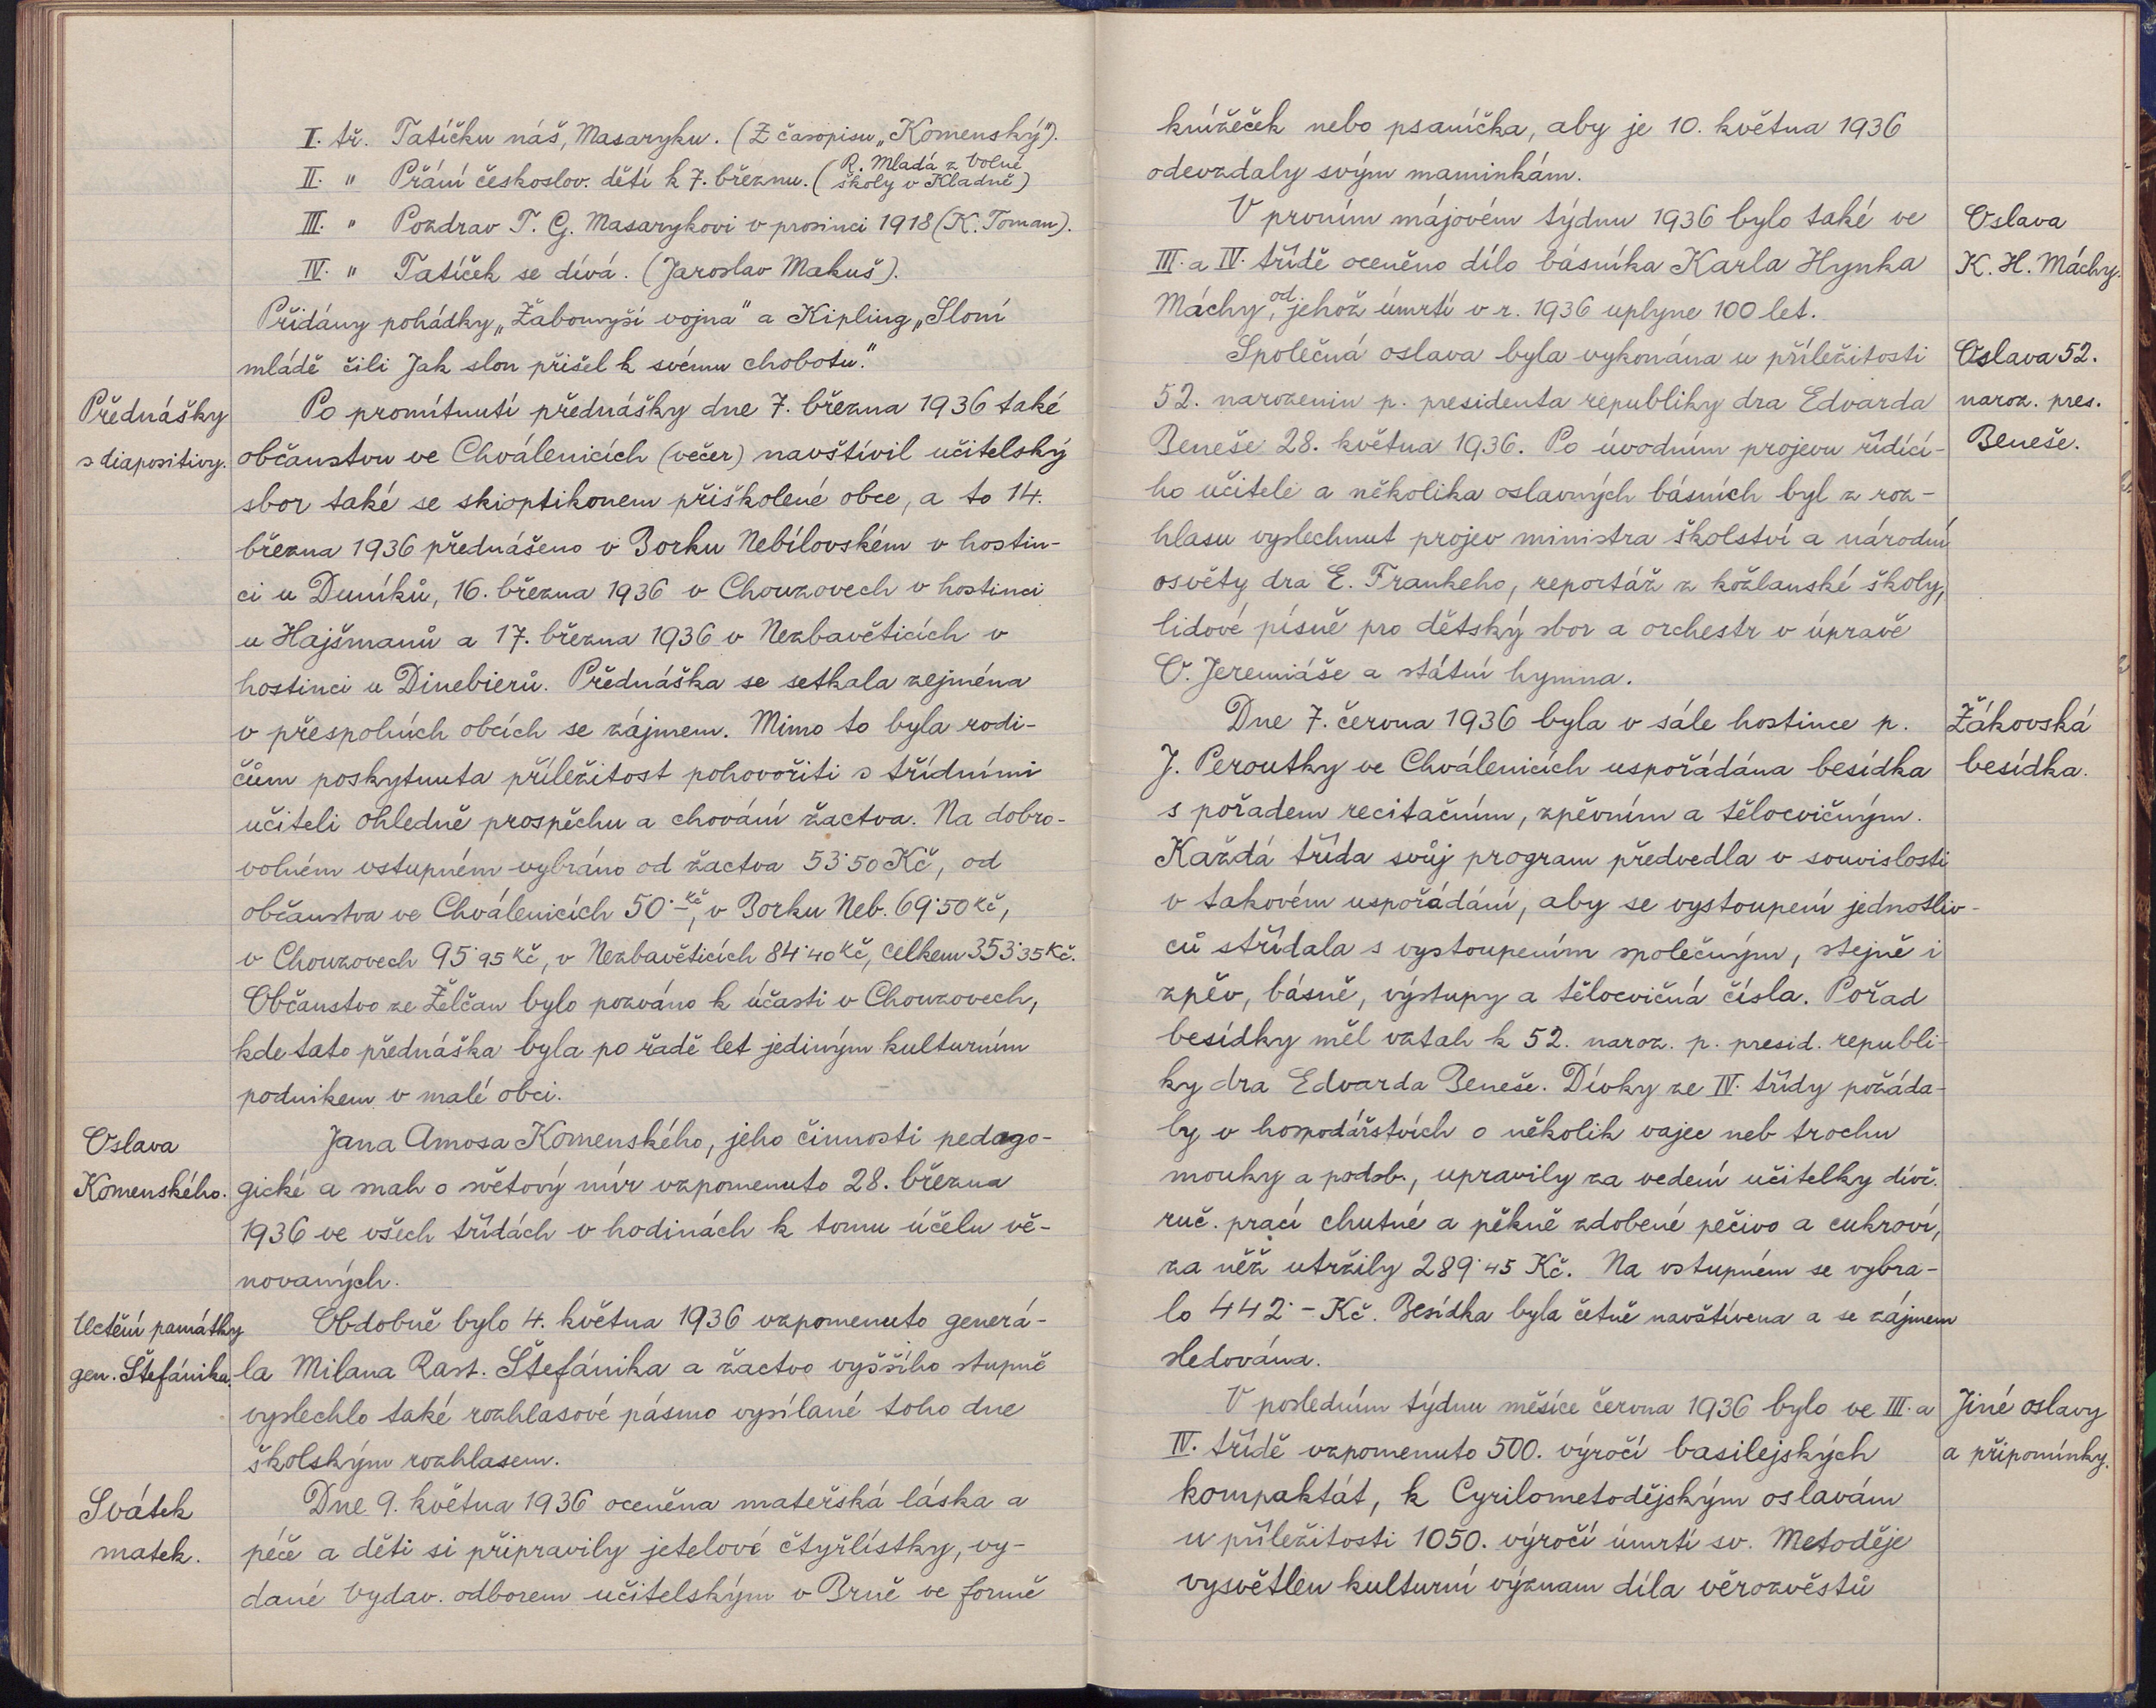 I. tř. Tatíčku náš, Masaryku. (Z časopisu „Komenský").
II. " Přání českoslov. dětí k 7. březnu. (R. Mladá z Volné školy v Kladně)
III. " Pozdrav T. G. Masarykovi v prosinci 1918 (K. Toman).
IV. " Tatíček se dívá. (Jaroslav Makuš).
Přidány pohádky „Žabomyší vojna" a Kipling „Sloní
mládě čili Jak slon přišel k svému chobotu."
Přednášky
s diapositivy.
Po promítnutí přednášky dne 7. března 1936 také
občanstvu ve Chválenicích (večer) navštívil učitelský
sbor také se skioptikonem přiškolené obce, a to 14.
března 1936 přednášeno v Borku Nebílovském v hostin-
ci u Duníků, 16. března 1936 v Chouzovech v hostinci
u Hajšmanů a 17. března 1936 v Nezbavěticích v
hostinci u Dinebierů. Přednáška se setkala zejména
v přespolních obcích se zájmem. Mimo to byla rodi-
čům poskytnuta příležitost pohovořiti s třídními
učiteli ohledně prospěchu a chování žactva. Na dobro-
volném vstupném vybráno od žactva 53·50 Kč, od
občanstva ve Chválenicích 50·- Kč, v Borku Neb. 69·50 Kč,
v Chouzovech 95·95 Kč, v Nezbavěticích 84·40 Kč, celkem 353·35 Kč.
Občanstvo ze Želčan bylo pozváno k účasti v Chouzovech,
kde tato přednáška byla po řadě let jediným kulturním
podnikem v malé obci.
Oslava
Komenského.
Jana Amosa Komenského, jeho činnosti pedago-
gické a snah o světový mír vzpomenuto 28. března
1936 ve všech třídách v hodinách k tomu účelu vě-
novaných.
Uctění památky
gen. Štefánika.
Obdobně bylo 4. května 1936 vzpomenuto generá-
la Milana Rast. Štefánika a žactvo vyššího stupně
vyslechlo také rozhlasové pásmo vysílané toho dne
školským rozhlasem.
Svátek
matek.
Dne 9. května 1936 oceněna mateřská láska a
péče a děti si připravily jetelové čtyřlístky, vy-
dané Vydav. odborem učitelským v Brně ve formě
knížeček nebo psaníčka, aby je 10. května 1936
odevzdaly svým maminkám.
V prvním májovém týdnu 1936 bylo také ve
III. a IV. třídě oceněno dílo básníka Karla Hynka
Máchy, od jehož úmrtí v r. 1936 uplyne 100 let.
Oslava
K. H. Máchy.
Společná oslava byla vykonána u příležitosti
52. narozenin p. presidenta republiky dra Edvarda
Beneše 28. května 1936. Po úvodním projevu řídící-
ho učitele a několika oslavných básních byl z roz-
hlasu vyslechnut projev ministra školství a národní
osvěty dra E. Frankeho, reportáž z kožlanské školy,
lidové písně pro dětský sbor a orchestr v úpravě
O. Jeremiáše a státní hymna.
Oslava 52.
naroz. pres.
Beneše.
Dne 7. června 1936 byla v sále hostince p.
J. Peroutky ve Chválenicích uspořádána besídka
s pořadem recitačním, zpěvním a tělocvičným.
Každá třída svůj program předvedla v souvislosti
v takovém uspořádání, aby se vystoupení jednotliv-
ců střídala s vystoupením společným, stejně i
zpěv, básně, výstupy a tělocvičná čísla. Pořad
besídky měl vztah k 52. naroz. p. presid. republi-
ky dra Edvarda Beneše. Dívky ze IV. třídy požáda-
ly v hospodářstvích o několik vajec neb trochu
mouky a podob., upravily za vedení učitelky dívč.
ruč. prací chutné a pěkně zdobené pečivo a cukroví,
za něž utržily 289·45 Kč. Na vstupném se vybra-
lo 442·- Kč. Besídka byla četně navštívena a se zájmem
sledována.
Žákovská
besídka.
V posledním týdnu měsíce června 1936 bylo ve III. a
IV. třídě vzpomenuto 500. výročí basilejských
kompaktát, k Cyrilometodějským oslavám
u příležitosti 1050. výročí úmrtí sv. Metoděje
vysvětlen kulturní význam díla věrozvěstů
Jiné oslavy
a připomínky.